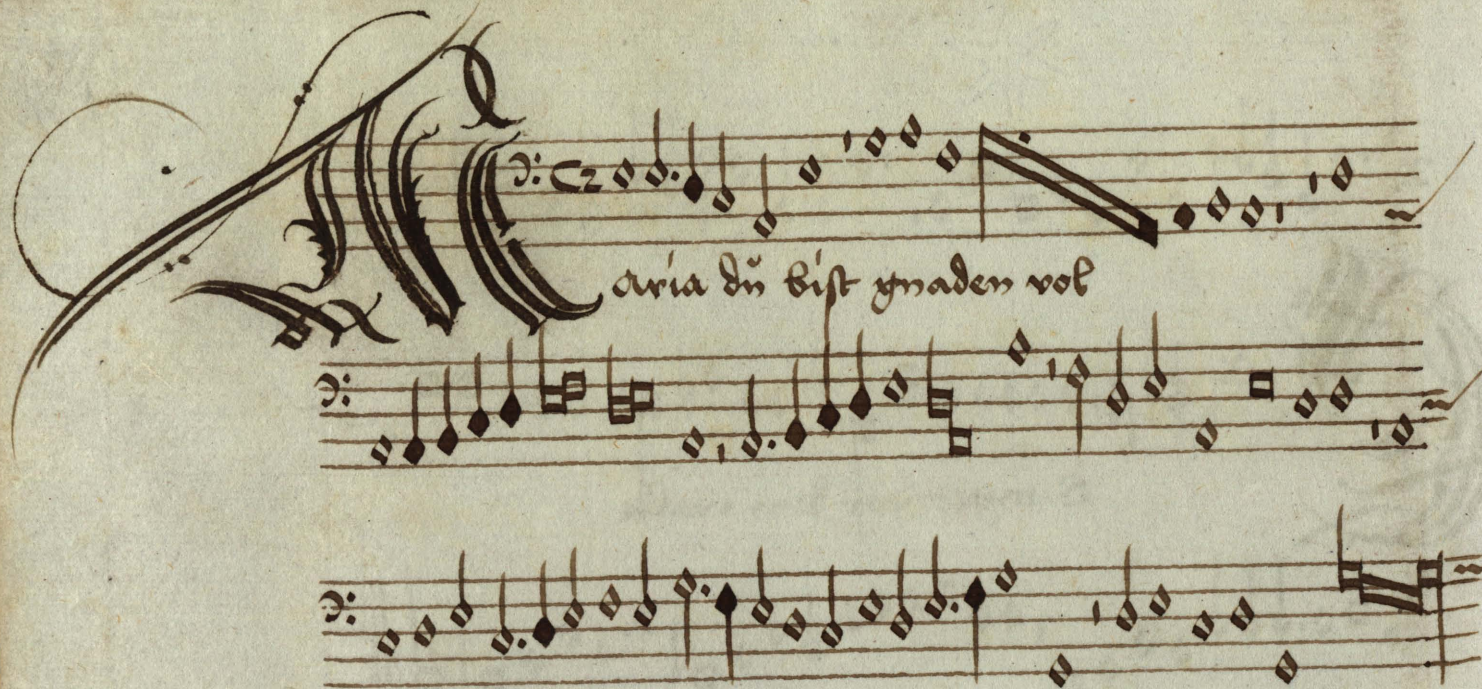 Maria dŭ bist gnaden vol